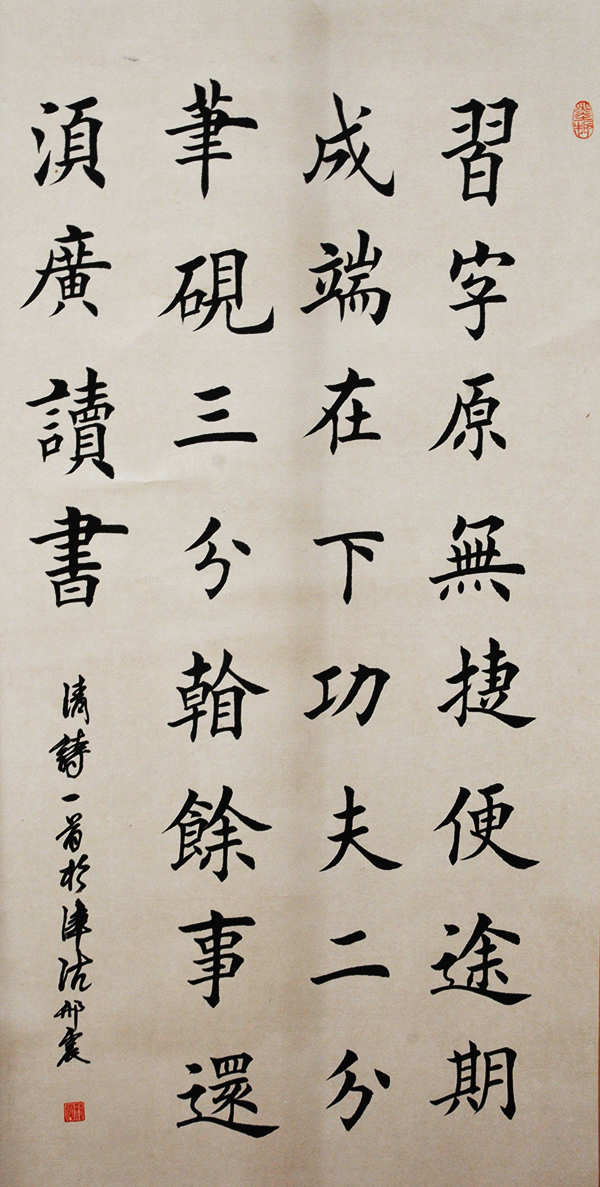 習字原無捷便途期
成端在下功夫二分
筆硯三分看餘事還
湏廣讀書
清詩一首於津沽邢震